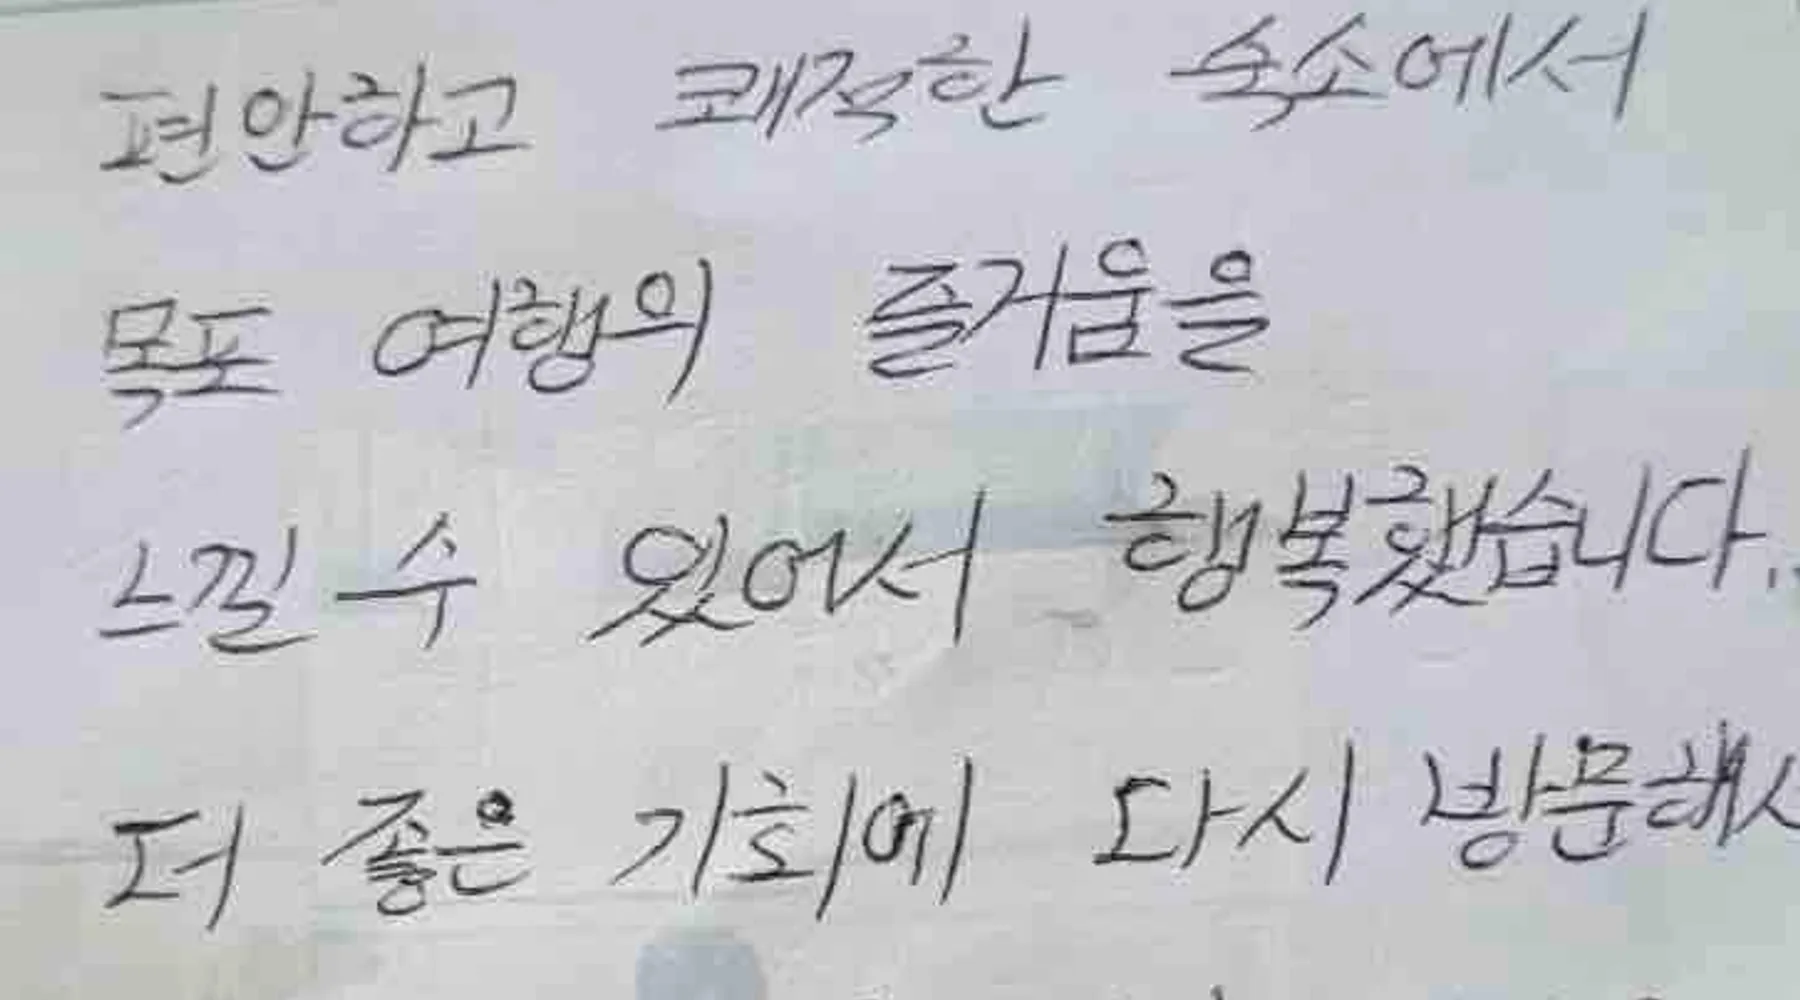 편안하고 쾌적한 숙소에서
목포 여행의 즐거움을
느낄 수 있어서 행복했습니다.
더 좋은 기회에 다시 방문해서